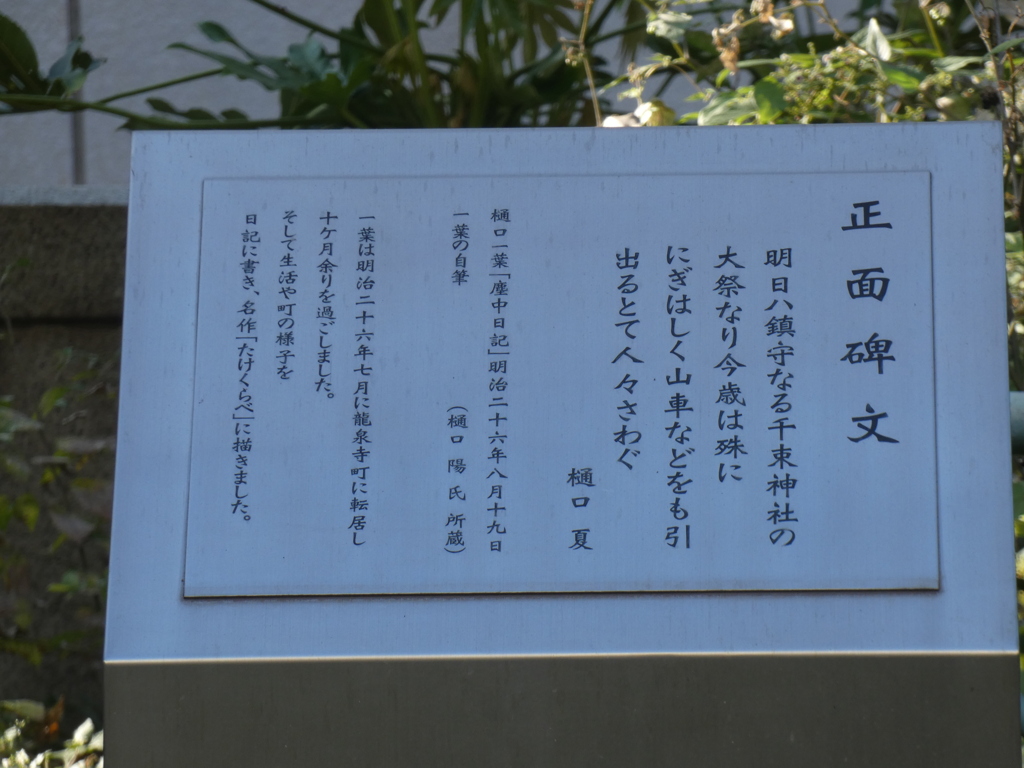 正面碑文
明日ハ鎮守なる千束神社の
大祭なり今歳は殊に
にぎはしく山車などをも引
出るとて人々さわぐ
樋口 夏
樋口一葉「塵中日記」明治二十六年八月十九日
一葉の自筆 (樋口 陽氏所蔵)
一葉は明治二十六年七月に龍泉寺町に転居し
十ケ月余りを過ごしました。
そして生活や町の様子を
日記に書き、名作「たけくらべ」に描きました。